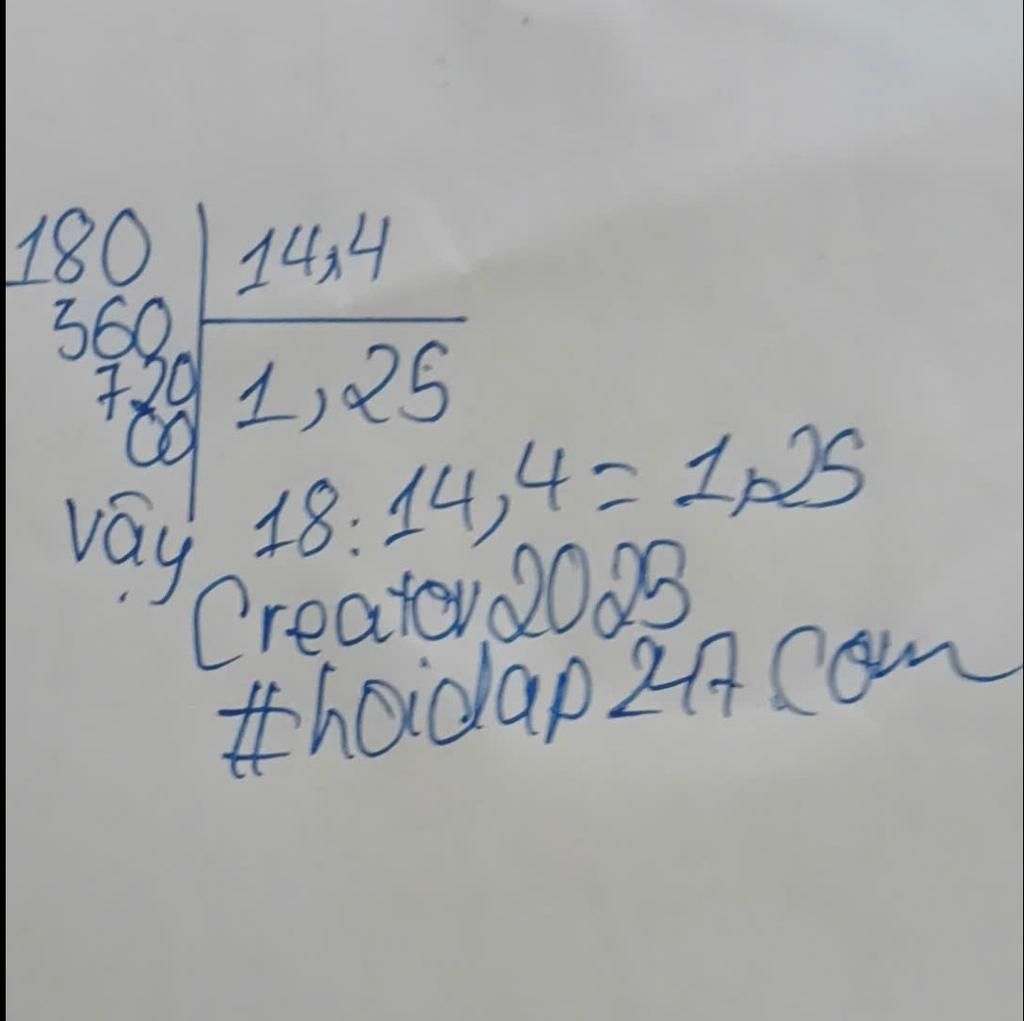 180 14,4
360
720 1,25
00
Vậy 18:14,4=1,25
Creator2023
#hoidap247.com